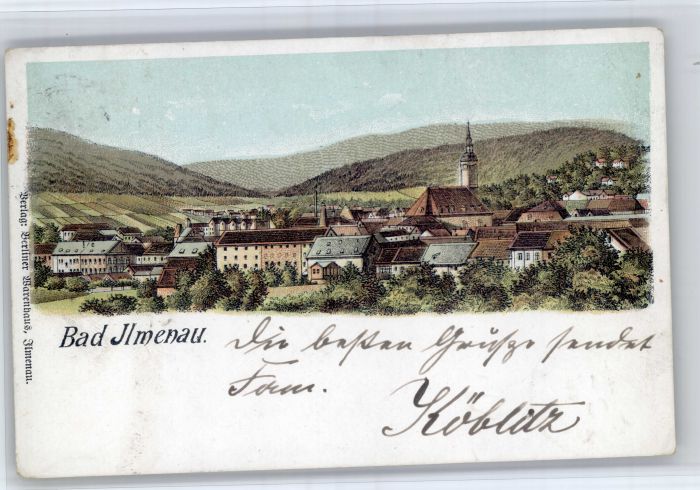 Bad Ilmenau.
Die besten Grüsze sendet
Fam.
Köblitz
Verlag: Berliner Warenhaus, Ilmenau.